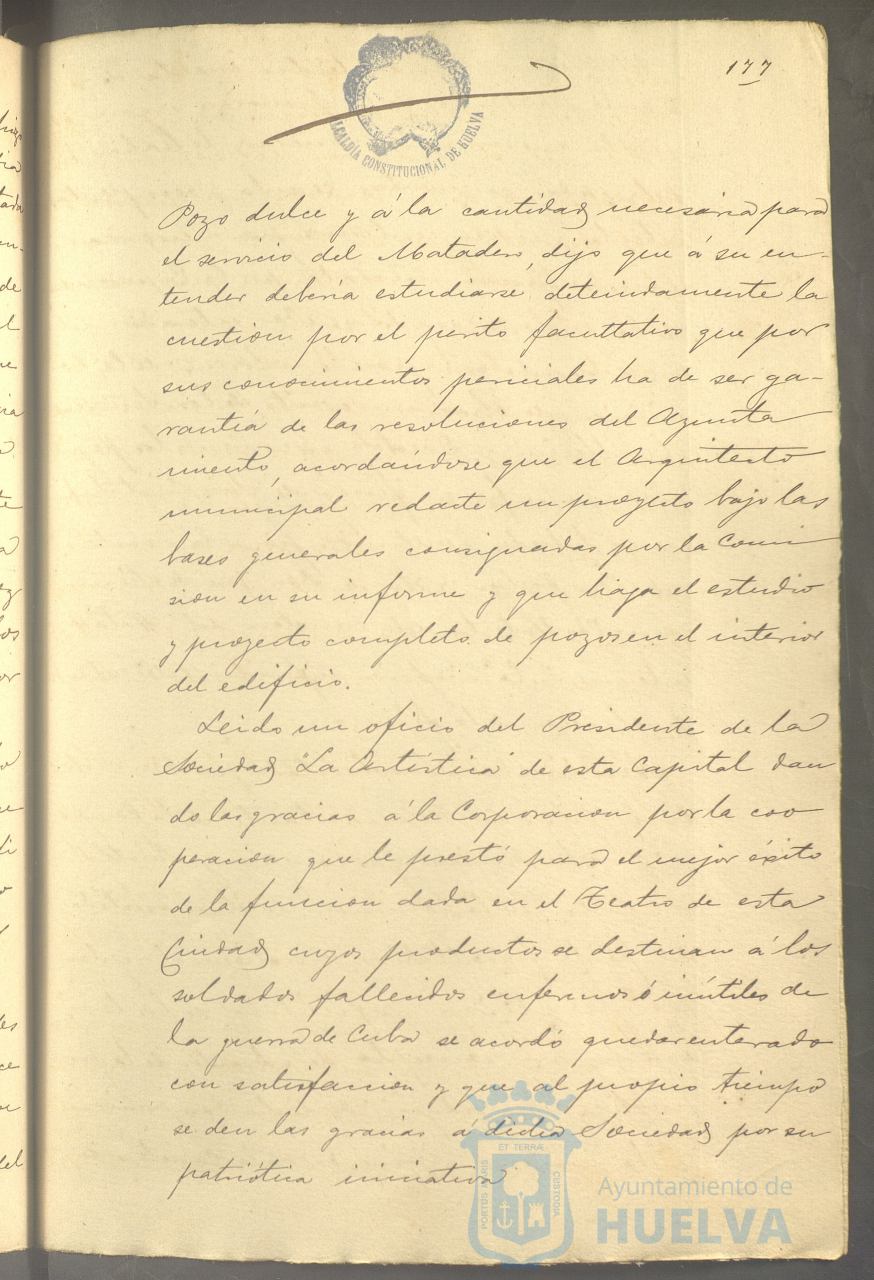 177
ALCALDÍA CONSTITUCIONAL DE HUELVA
Pozo dulce y á la cantidad necesaria para
el servicio del Matadero, dijo que á su en-
tender debería estudiarse detenidamente la
cuestion por el perito facultativo que por
sus conocimientos periciales ha de ser ga-
rantía de las resoluciones del Ayunta
miento, acordándose que el Arquitecto
municipal redacte un proyecto bajo las
bases generales consignadas por la Comi
sion en su informe y que haga el estudio
y proyecto completo de pozos en el interior
del edificio.
Leido un oficio del Presidente de la
Sociedad "La Artística" de esta Capital dan
do las gracias á la Corporacion por la coo
peracion que le prestó para el mejor éxito
de la funcion dada en el Teatro de esta
Ciudad cuyos productos se destinan á los
soldados fallecidos enfermos ó inútiles de
la guerra de Cuba se acordó quedar enterado
con satisfaccion y que al propio tiempo
se den las gracias á dicha Sociedad por su
patriótica iniciativa
PORTUS MARIS ET TERRÆ CUSTODIA
Ayuntamiento de
HUELVA